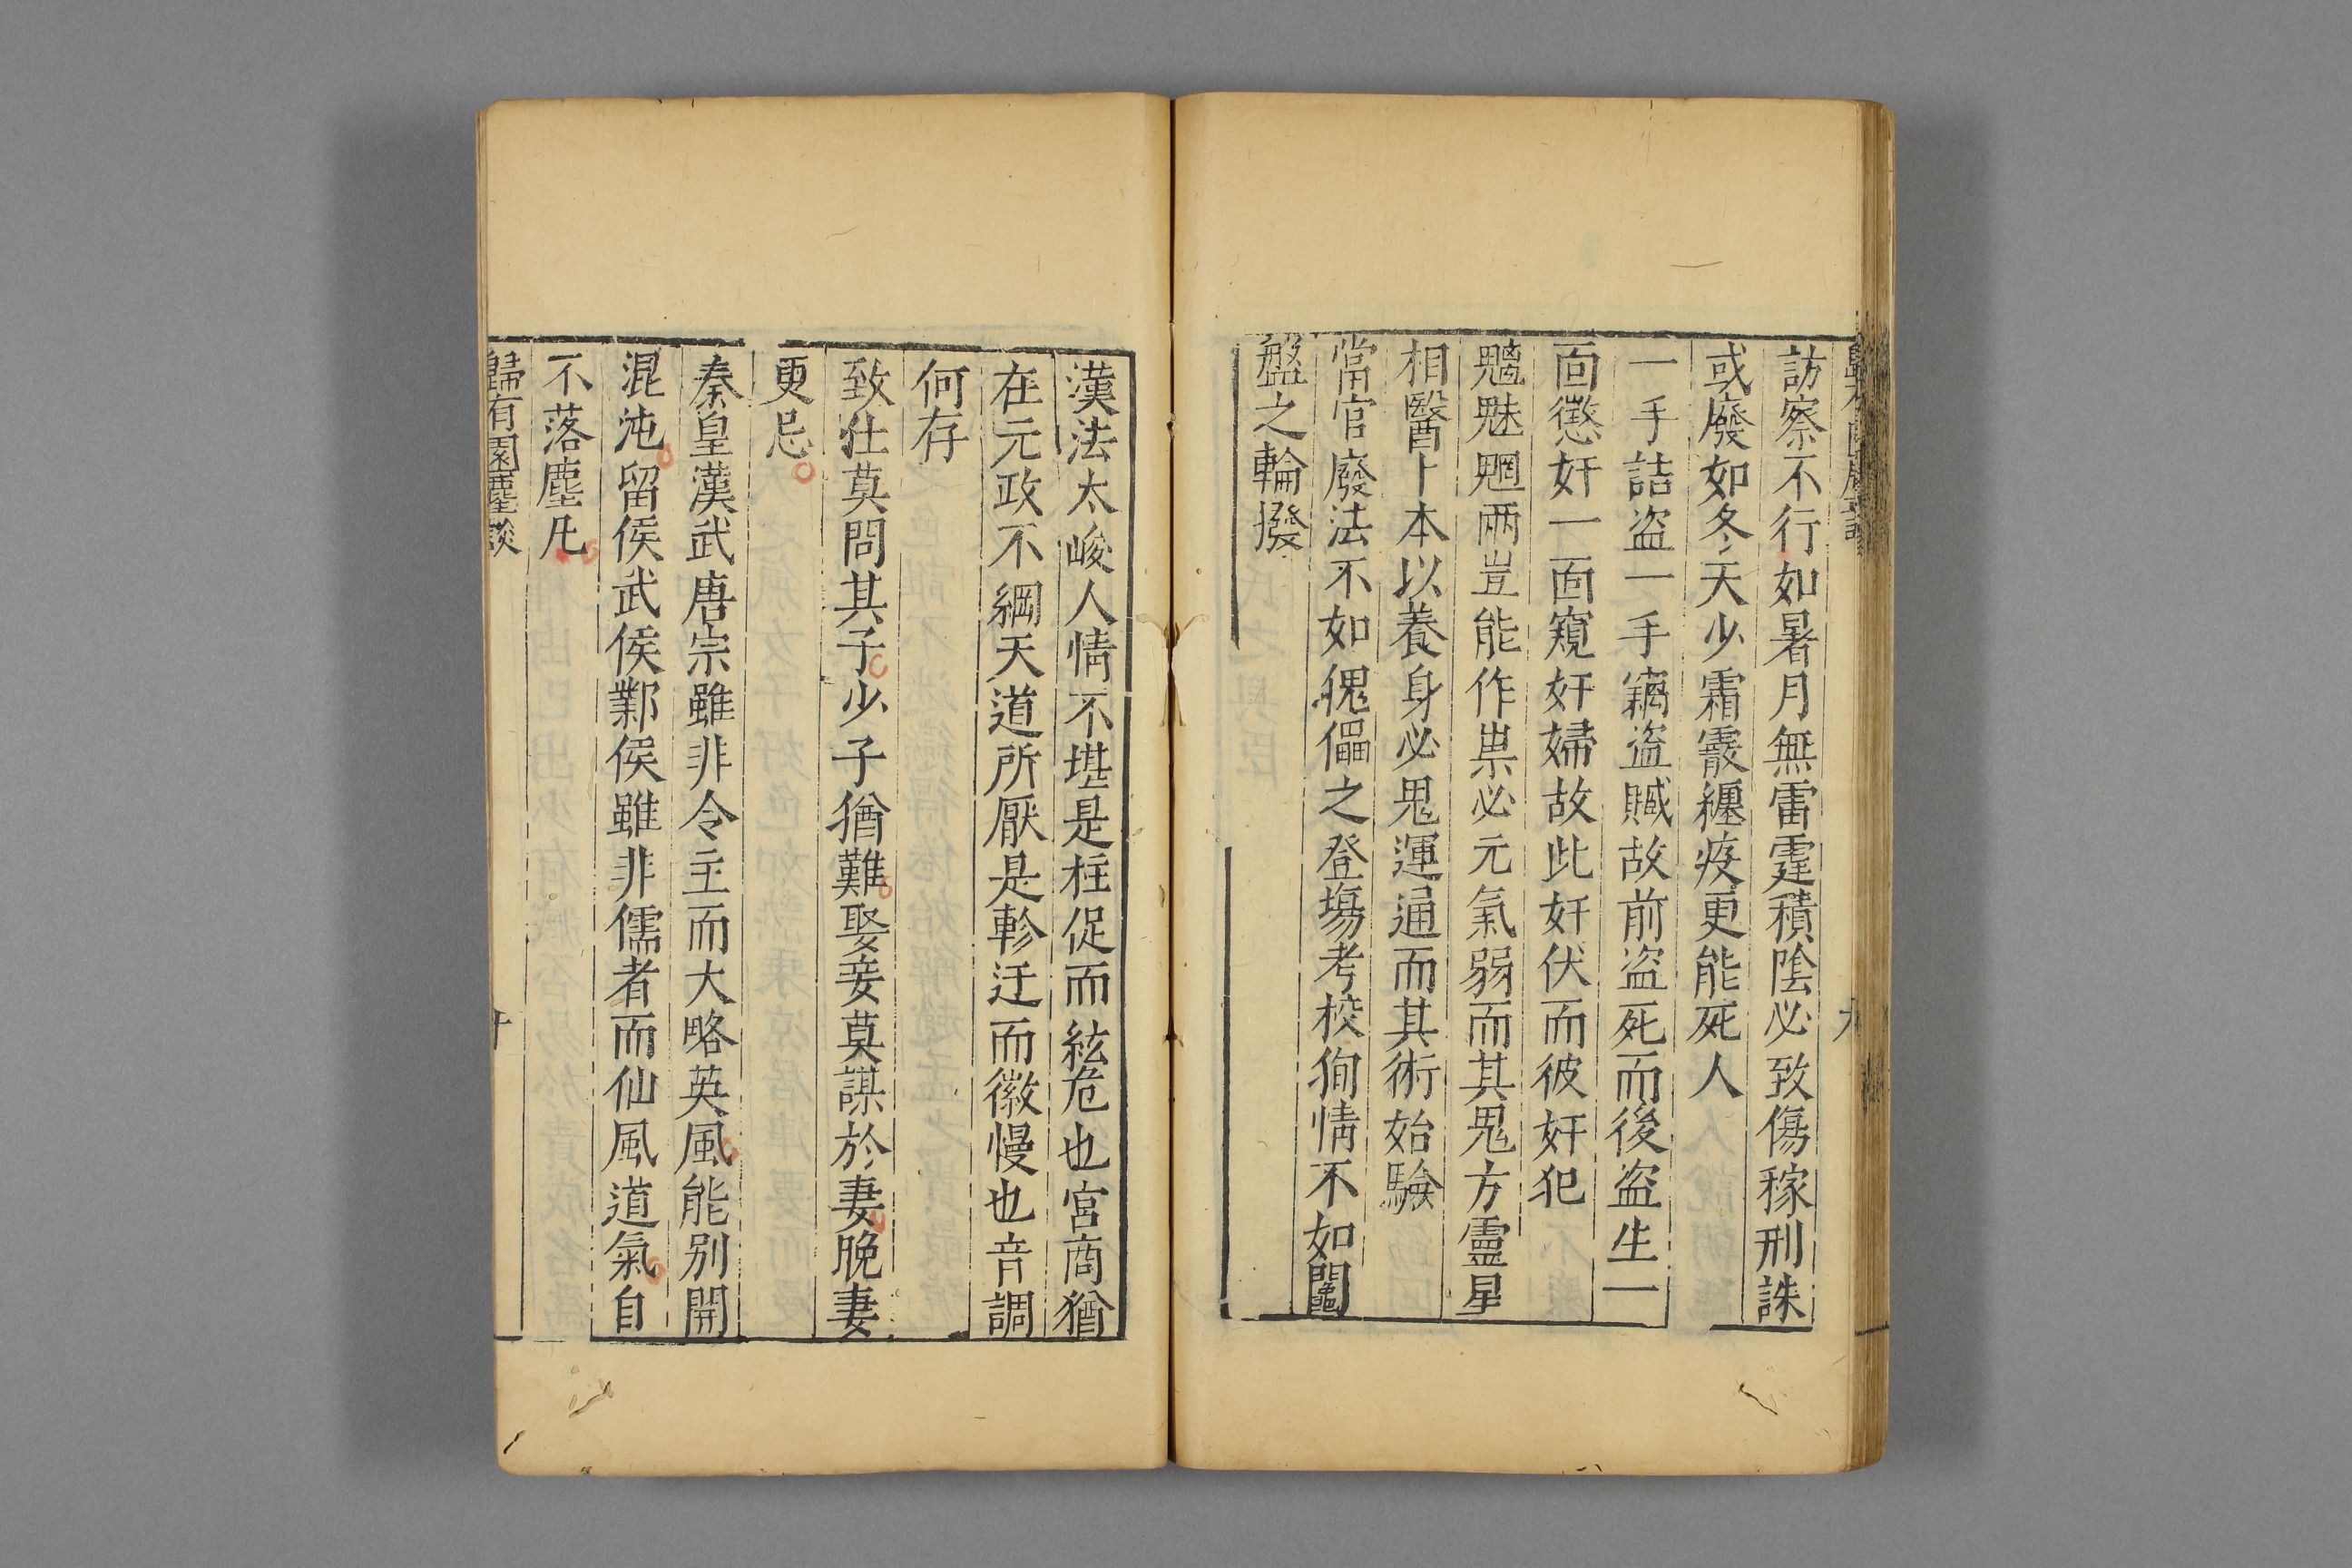 訪察不行如暑月無雷霆積陰必致傷稼刑誅
或廢如冬天少霜霰纏疫更能死人
一手詰盜一手竊盜贓故前盜死而後盜生一
面懲奸一面窺奸婦故此奸伏而彼奸犯
魑魅魍魎豈能作祟必元氣弱而其鬼方靈星
相醫卜本以養身必鬼運通而其術始驗
當官廢法不如傀儡之登場考校徇情不如鬮
盤之輪撥
漢法太峻人情不堪是柱促而絃危也宮商猶
在元政不綱天道所厭是軫迂而徽慢也音調
何存
致仕莫問其子少子猶難娶妾莫謀於妻晚妻
更忌
秦皇漢武唐宗雖非令主而大略英風能別開
混沌留侯武侯鄴侯雖非儒者而仙風道氣自
不落塵凡
歸有園麈談